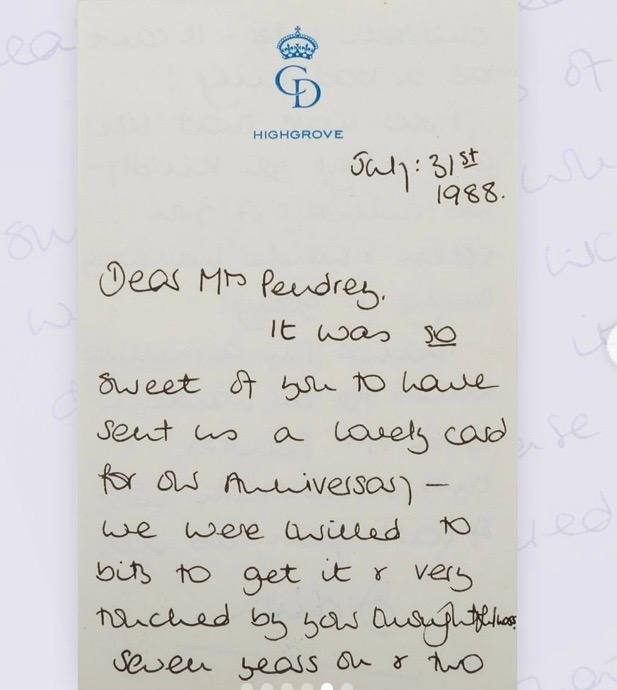 CD
HIGHGROVE
July: 31st
1988.
Dear Mrs Pendrey.
It was so
sweet of you to have
sent us a lovely card
for our Anniversary –
we were thrilled to
bits to get it & very
touched by your thoughtfulness
seven years on & two